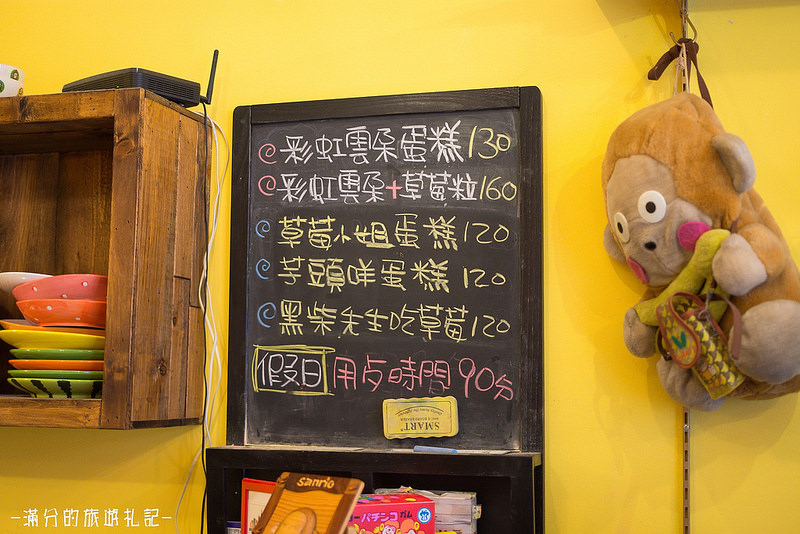 彩虹雲朵蛋糕130
彩虹雲朵+草莓粒160
草莓小姐蛋糕120
芋頭咩蛋糕120
黑柴先生吃草莓120
假日 用歺時間90分
SMART
sanrio
パチンコ ガム
-滿分的旅遊札記-